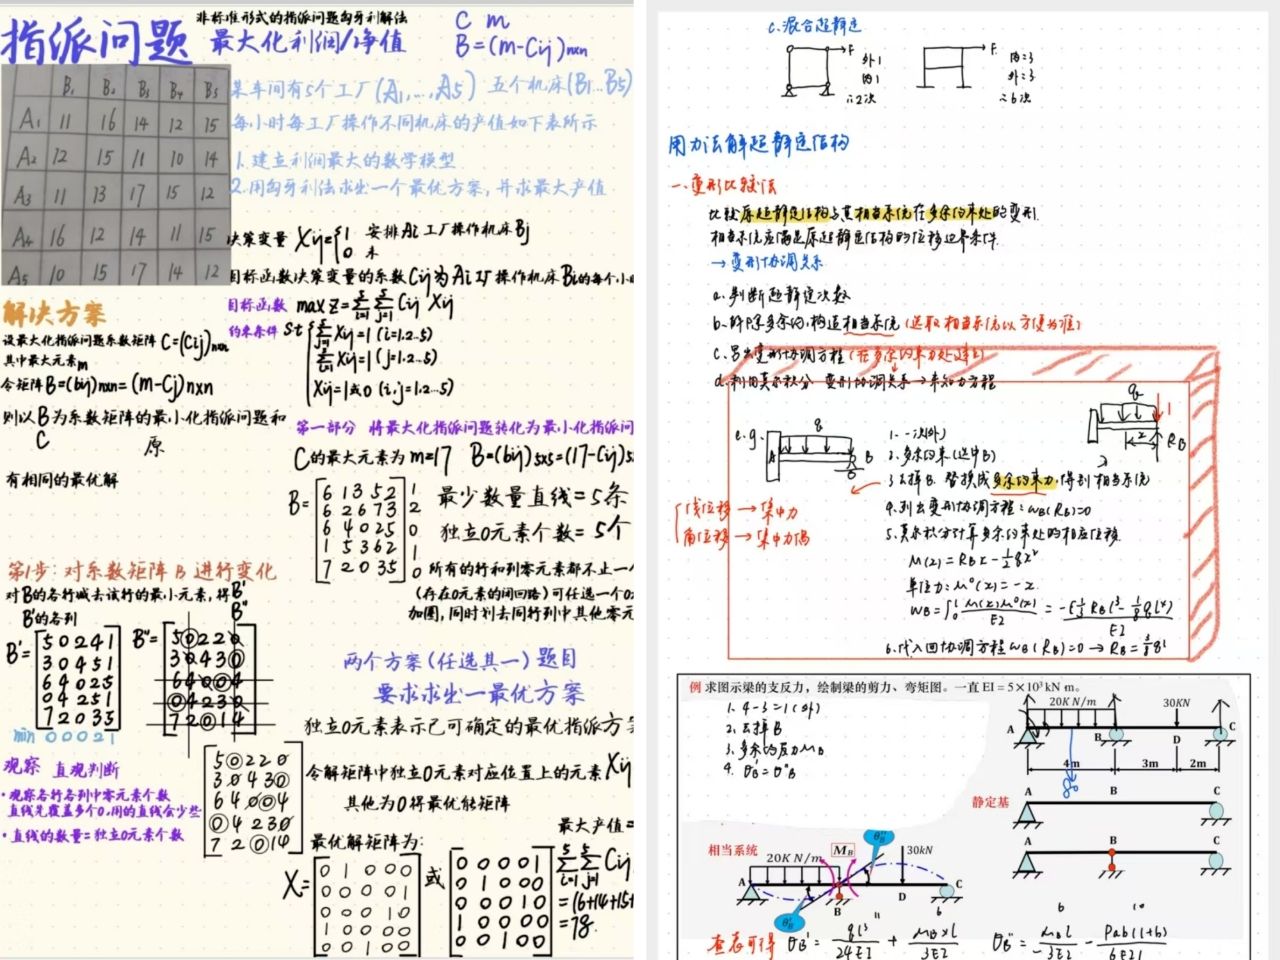 指派问题
非标准形式的指派问题匈牙利解法
最大化利润/净值
C m
B=(m-Cij)nxn
B₁ B₂ B₃ B₄ B₅
A₁ 11 16 14 12 15
A₂ 12 15 11 10 14
A₃ 11 13 17 15 12
A₄ 16 12 14 11 15
A₅ 10 15 17 14 12
某车间有5个工厂(A₁,...,A5) 五个机床(B₁...B5)
每小时每工厂操作不同机床的产值如下表所示
1.建立利润最大的数学模型
2.用匈牙利法求出一个最优方案,并求最大产值
决策变量 Xij={1 安排Ai工厂操作机床Bj
0 未
目标函数决策变量的系数Cij为Ai工厂操作机床Bi的每个小时
目标函数 max z=5∑i=1 5∑j=1 Cij Xij
约束条件 St
5∑j=1 Xij=1 (i=1.2..5)
5∑i=1 Xij=1 (j=1.2..5)
Xij=1或0 (i,j=1.2...5)
解决方案
设最大化指派问题系数矩阵C=(Cij)nxn
其中最大元素m
令矩阵B=(bij)nxn=(m-Cj)nxn
则以B为系数矩阵的最小化指派问题和
C 原
有相同的最优解
第一部分 将最大化指派问题转化为最小化指派问
C的最大元素为m=17 B=(bij)5x5=(17-Cij)5
B=
6 1 3 5 2 1
6 2 6 7 3 2
6 4 0 2 5 0
1 5 3 6 2 1
7 2 0 3 5 0
最少数量直线=5条
独立0元素个数=5个
所有的行和列零元素都不止一个
(存在0元素的闭回路)可任选一个0
加圈,同时划去同行列中其他零元
第1步:对系数矩阵B进行变化
对B的各行减去该行的最小元素,得B'
B'的各列 B''
B'=
5 0 2 4 1
3 0 4 5 1
6 4 0 2 5
0 4 2 5 1
7 2 0 3 5
min 0 0 0 2 1
B''=
5 0 2 2 0
3 0 4 3 0
6 4 0 0 4
0 4 2 3 0
7 2 0 1 4
观察 直观判断
·观察各行各列中零元素个数
直线先覆盖多个0,用的直线会少些
·直线的数量=独立0元素个数
5 0 2 2 0
3 0 4 3 0
6 4 0 0 4
0 4 2 3 0
7 2 0 1 4
两个方案(任选其一)题目
要求求出一最优方案
独立0元素表示已可确定的最优指派方案
令解矩阵中独立0元素对应位置上的元素Xij
其他为0得最优解矩阵
最优解矩阵为:
X=
0 1 0 0 0
0 0 0 0 1
0 0 0 1 0
1 0 0 0 0
0 0 1 0 0
或
0 0 0 0 1
0 1 0 0 0
0 0 0 1 0
1 0 0 0 0
0 0 1 0 0
最大产值=
5∑i=1 5∑j=1 Cij
=(16+14+15+
=78.
c.混合超静定
F
外1
内1
∴2次
F.
内=3
外=3
∴6次
用力法解超静定结构
一.变形比较法
比较原超静定结构与其相当系统在多余约束处的变形.
相当系统应满足原超静定结构的位移边界条件.
→变形协调关系
a.判断超静定次数
b.解除多余约,构造相当系统(选取相当系统以方便为准)
c.写出变形协调方程(在多余约束力处建立)
d.利用莫尔积分 变形协调关系→未知力方程
e.g. A q B
q 1 x RB
1.一次(外)
2.多余约束(选中B)
3.去掉B.替换成多余约束力,得到相当系统
4.列出变形协调方程:wB(RB)=0
5.莫尔积分计算多余约束处的相应位移.
M(x)=RBx-½qx²
单位力:M°(x)=-x
wB=∫₀ˡ M(x)M°(x)/EI = -[⅓RBl³-⅛ql⁴]/EI
6.代入回协调方程wB(RB)=0→RB=⅜ql
线位移→集中力
角位移→集中力偶
例 求图示梁的支反力,绘制梁的剪力、弯矩图。一直EI=5×10³kN m。
1. 4-3=1(外)
2.去掉B
3.多余约反力MB
4. θB'=θ''B
20K N/m 30KN
A B D C
4m 3m 2m
80
静定基 A B C
A B C
相当系统
20K N/m MB θB'' 30kN
A B D C
θB'
查表可得 θB'=ql³/24EI + MB×l/3EI
θB''=MBl/-3EI - Pab(l+b)/6EIl